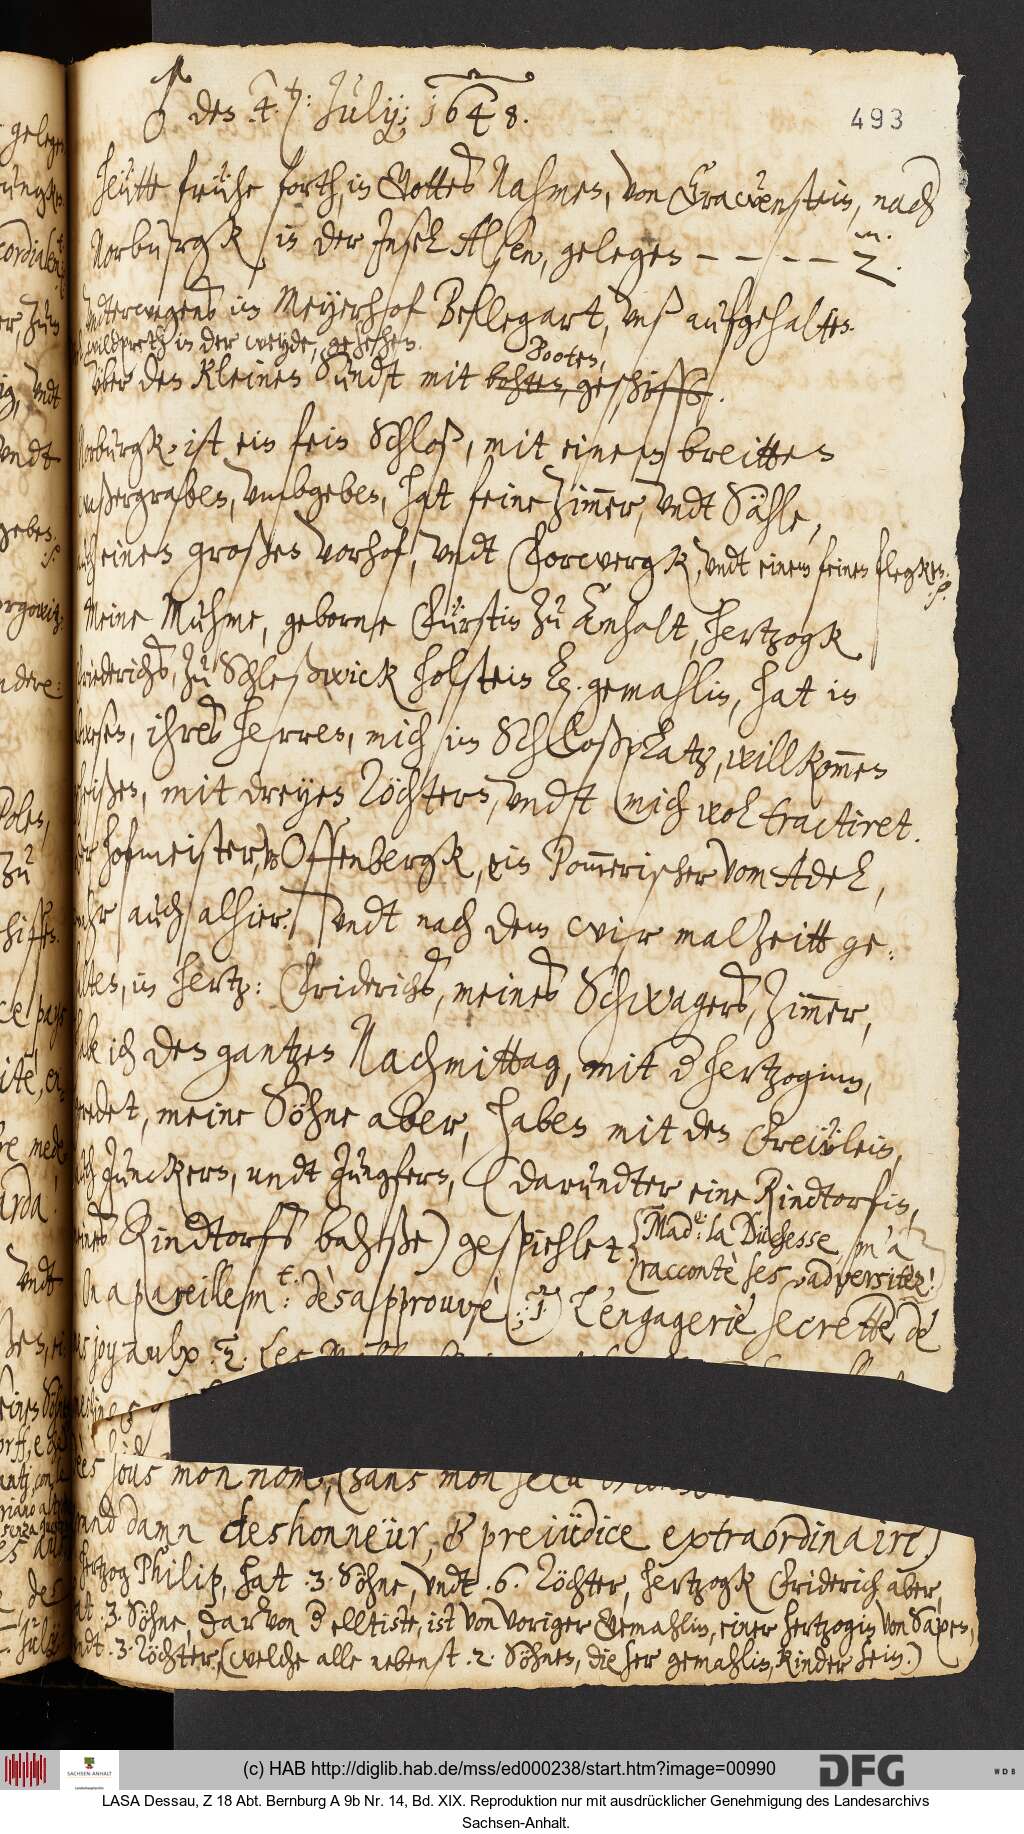 ♂ des 4.ten: Julij; 1648.
493
Heütte frühe forth, in Gottes Nahmen, von Gravenstein, nach
Norburgk, in der Insel Alsen, gelegen – – – – 2 m.
Vndterwegens im Meyerhof Beßlegart, vns aufgehalten.
wildpreth in der weyde, gesehen.
Booten,
über den kleinen Sundt mit bohten, geschifft.
Norburgk, ist ein fein Schloß, mit einem breitten
waßergraben, vmbgeben, hat feine Zimmer, vndt Sähle,
auch einen großen Vorhof, vndt Forwergk, vndt einem feinen flegken.
Meine Muhme, geborne Fürstin zu Anhalt, Hertzogk
Friederichs, zu Schleßwick Holstein gemahlin, hat in
abwesen, ihres Herren, mich im Schloßplatz, willkommen
heißen, mit dreyen Töchtern, vndt mich wol tractiret.
Der Hofmeister, Offenbergk, ein Pommerischer vom Adel,
wahr auch alhier. Vndt nach dem wir malzeitt ge-
halten, in Hertz: Friderichs, meines Schwagers, Zimmer,
habe ich den gantzen Nachmittag, mit der Hertzoginn,
geredet, meine Söhne aber, haben mit den Freülein,
auch Junckern, undt Jungfern, (darundter eine Rindtorfin,
eines Rindtorfs bahse) gespiehlet. Mad.e: la Düchesse m'a
racontè ses adversitèz!
On a pareillem.t: dèsapprouvè (; 1.) L'engagerie secrette de
mes joyaulx. 2. Les
sous mon nom, (sans mon sceu
grand damn deshonneür, & preiüdice extraordinaire.)
Hertzog Philip, hat .3. Söhne, vndt .6. Töchter, Hertzogk Friderich aber,
hat .3. Söhne, darvon der elltiste, ist von voriger Gemahlin, einer Hertzogin von Saxen,
vndt .3. Töchter, (welche alle nebenst .2. Söhnen, dieser gemahlin, kinder sein.)
(c) HAB http://diglib.hab.de/mss/ed000238/start.htm?image=00990
SACHSEN-ANHALT
DFG
WDB
LASA Dessau, Z 18 Abt. Bernburg A 9b Nr. 14, Bd. XIX. Reproduktion nur mit ausdrücklicher Genehmigung des Landesarchivs
Sachsen-Anhalt.